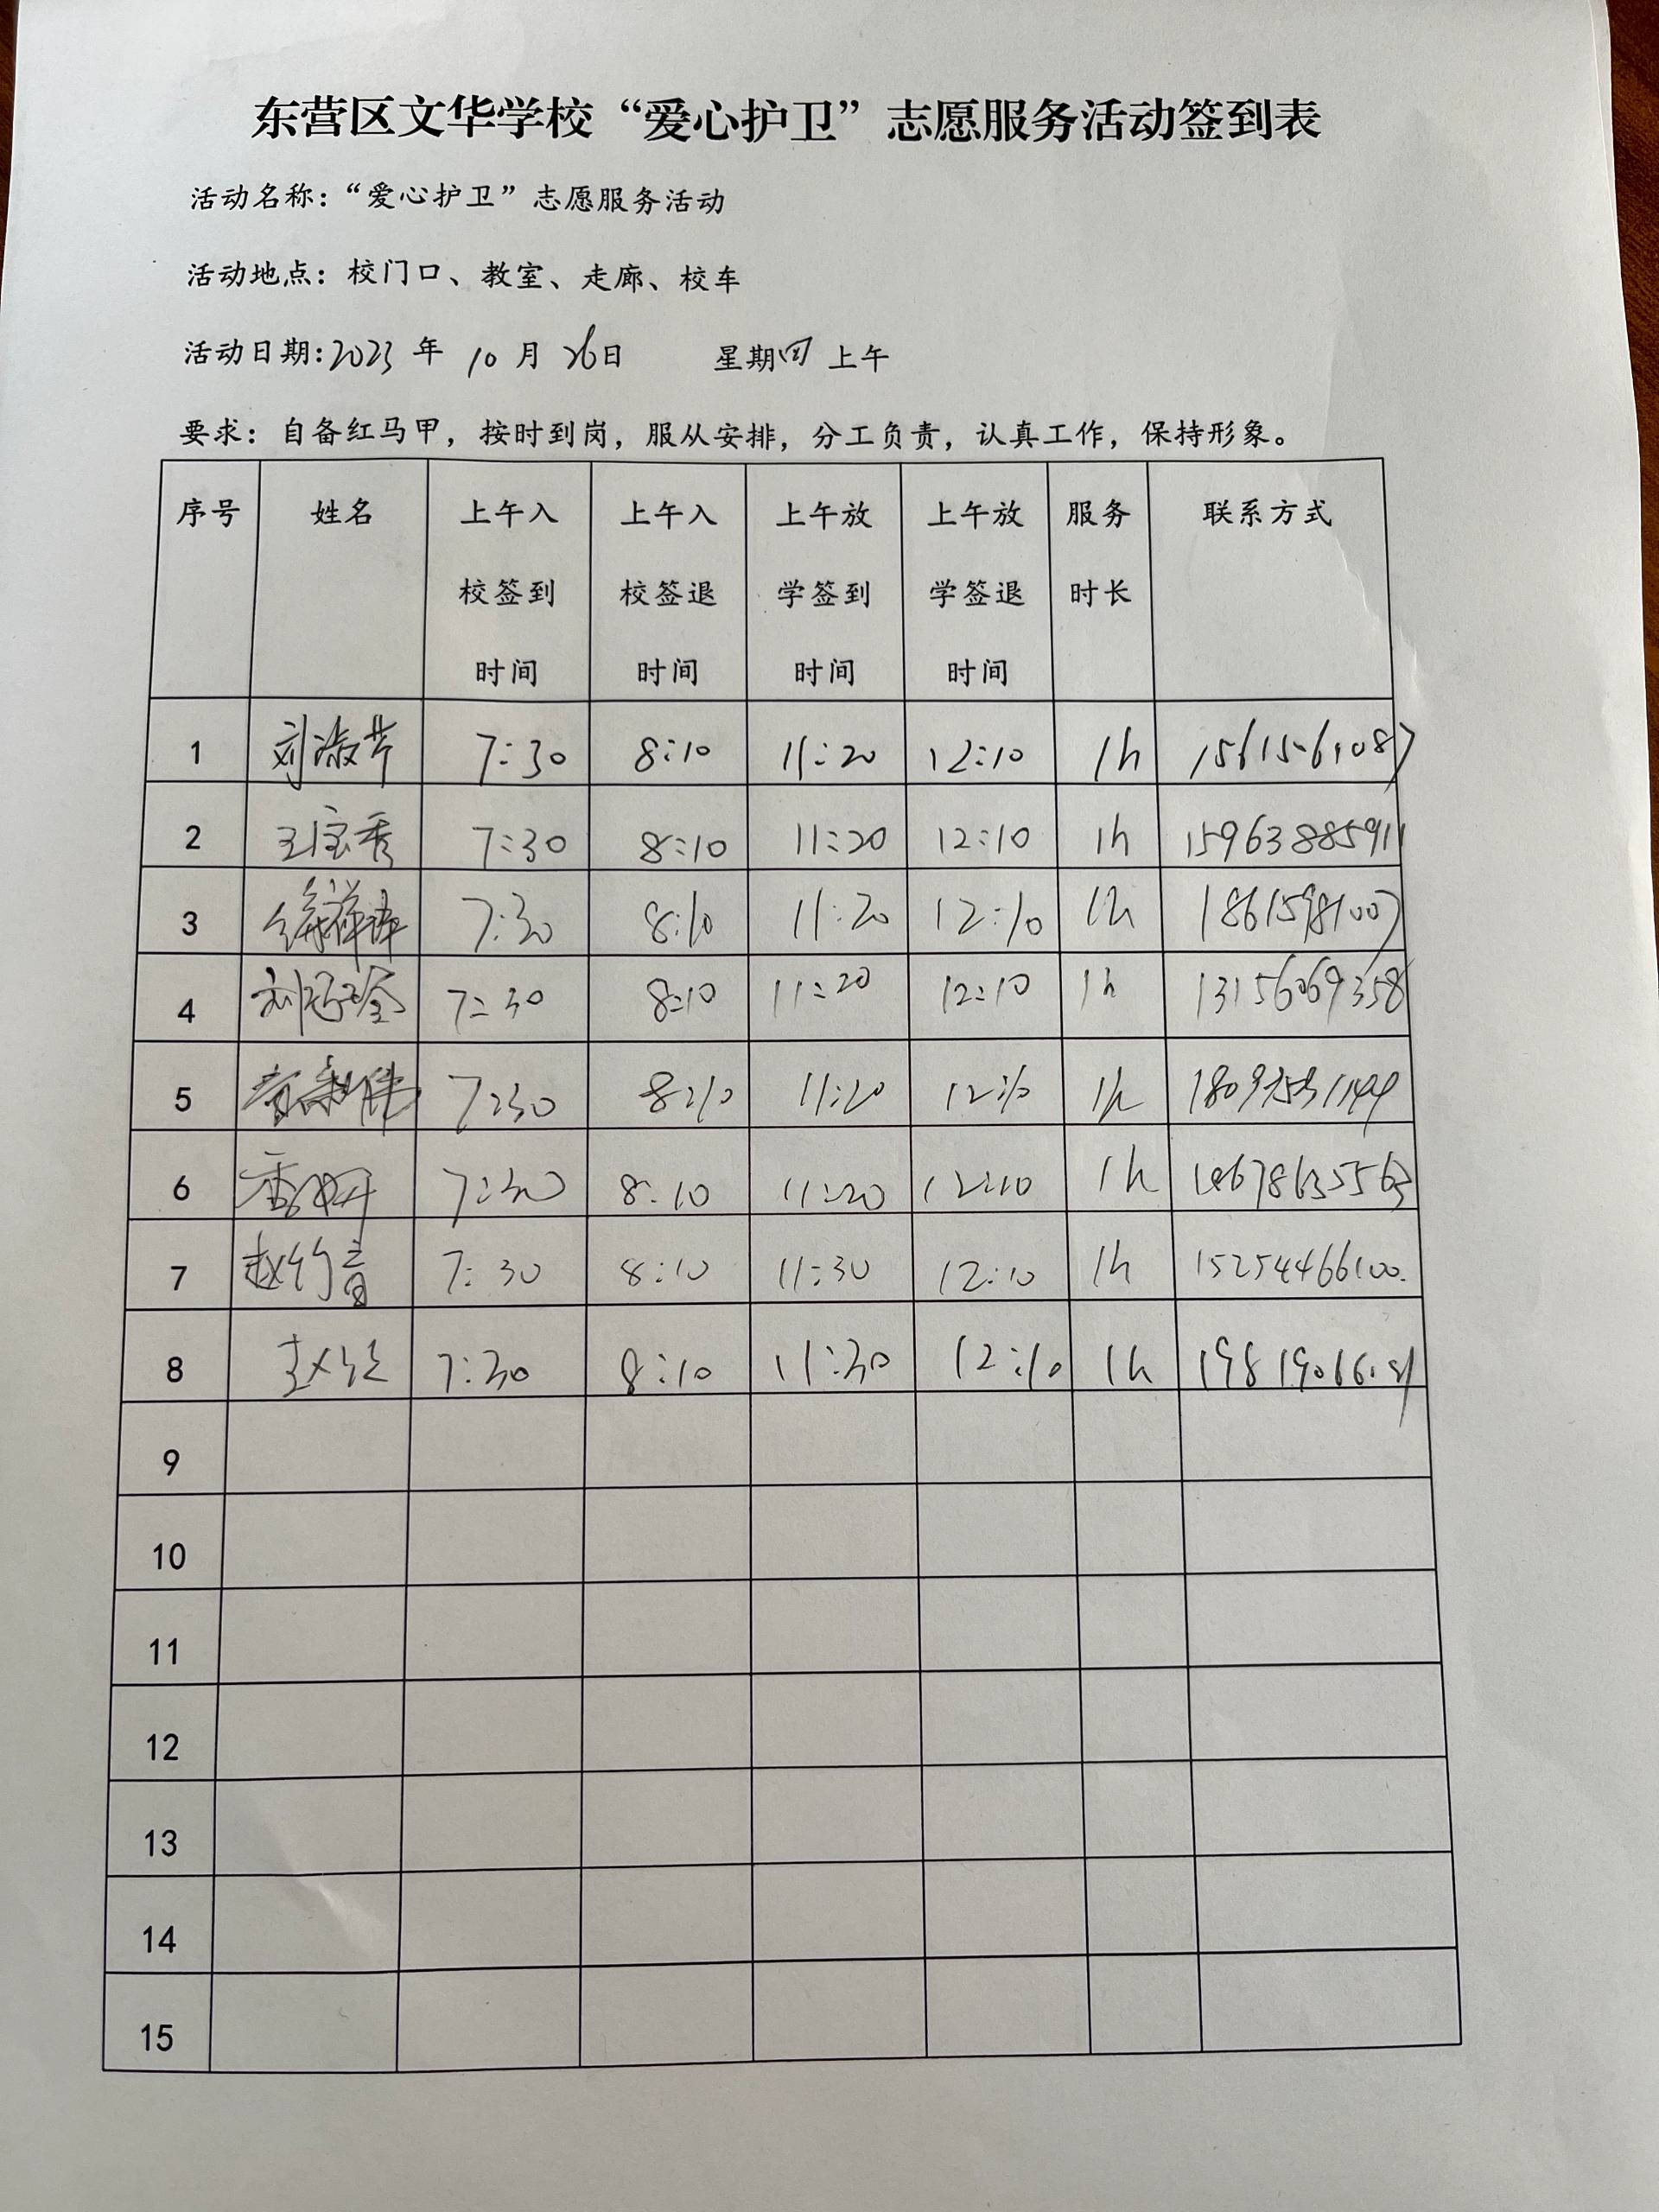 东营区文华学校“爱心护卫”志愿服务活动签到表
活动名称：“爱心护卫”志愿服务活动
活动地点：校门口、教室、走廊、校车
活动日期:2023 年 10 月 26日 星期四 上午
要求：自备红马甲，按时到岗，服从安排，分工负责，认真工作，保持形象。
序号 姓名 上午入校签到时间 上午入校签退时间 上午放学签到时间 上午放学签退时间 服务时长 联系方式
1 刘淑芹 7:30 8:10 11:20 12:10 1h 1561561087
2 王宝秀 7:30 8:10 11:20 12:10 1h 15963885911
3 7:30 8:10 11:20 12:10 1h 18615981007
4 7:30 8:10 11:20 12:10 1h 13156069358
5 7:30 8:10 11:20 12:10 1h
6 7:30 8:10 11:20 12:10 1h
7 赵竹音 7:30 8:10 11:30 12:10 1h 15254466100.
8 7:30 8:10 11:30 12:10 1h
9
10
11
12
13
14
15